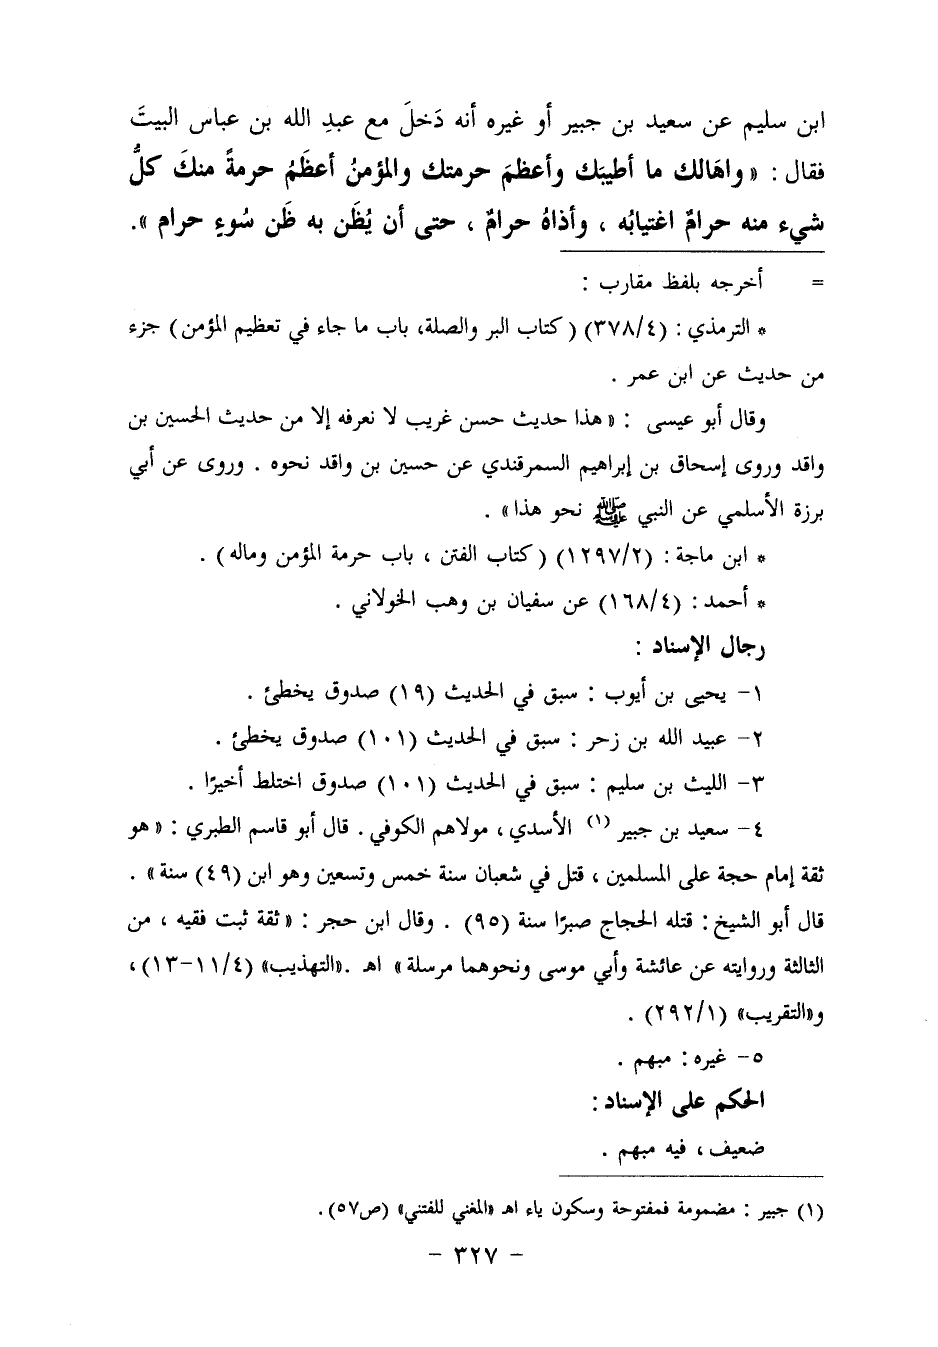 ابن سليم عن سعيد بن جبير أو غيره أنه دَخلَ مع عبدِ الله بن عباس البيتَ
فقال : «واهَالك ما أطيبَك وأعظمَ حرمتك والمؤمنُ أعظَمُ حرمةً منكَ كلُّ
شيء منه حرامٌ اغتيابُه ، وأذاهُ حرامٌ ، حتى أن يُظَن به ظَن سُوءٍ حرام ».
= أخرجه بلفظ مقارب :
* الترمذي : (٣٧٨/٤) (كتاب البر والصلة، باب ما جاء في تعظيم المؤمن) جزء
من حديث عن ابن عمر .
وقال أبو عيسى : «هذا حديث حسن غريب لا نعرفه إلا من حديث الحسين بن
واقد وروى إسحاق بن إبراهيم السمرقندي عن حسين بن واقد نحوه . وروى عن أبي
برزة الأسلمي عن النبي ﷺ نحو هذا» .
* ابن ماجة : (١٢٩٧/٢) (كتاب الفتن ، باب حرمة المؤمن وماله) .
* أحمد : (١٦٨/٤) عن سفيان بن وهب الخولاني .
رجال الإسناد :
١- يحيى بن أيوب : سبق في الحديث (١٩) صدوق يخطئ .
٢- عبيد الله بن زحر : سبق في الحديث (١٠١) صدوق يخطئ .
٣- الليث بن سليم : سبق في الحديث (١٠١) صدوق اختلط أخيرًا .
٤- سعيد بن جبير (١) الأسدي ، مولاهم الكوفي . قال أبو قاسم الطبري : «هو
ثقة إمام حجة على المسلمين ، قتل في شعبان سنة خمس وتسعين وهو ابن (٤٩) سنة» .
قال أبو الشيخ : قتله الحجاج صبرًا سنة (٩٥) . وقال ابن حجر : «ثقة ثبت فقيه ، من
الثالثة وروايته عن عائشة وأبي موسى ونحوهما مرسلة» اهـ .«التهذيب» (١١/٤-١٣) ،
و«التقريب» (٢٩٢/١) .
٥- غيره : مبهم .
الحكم على الإسناد :
ضعيف ، فيه مبهم .
(١) جبير : مضمومة فمفتوحة وسكون ياء اهـ «المغني للفتني» (ص٥٧) .
- ٣٢٧ -